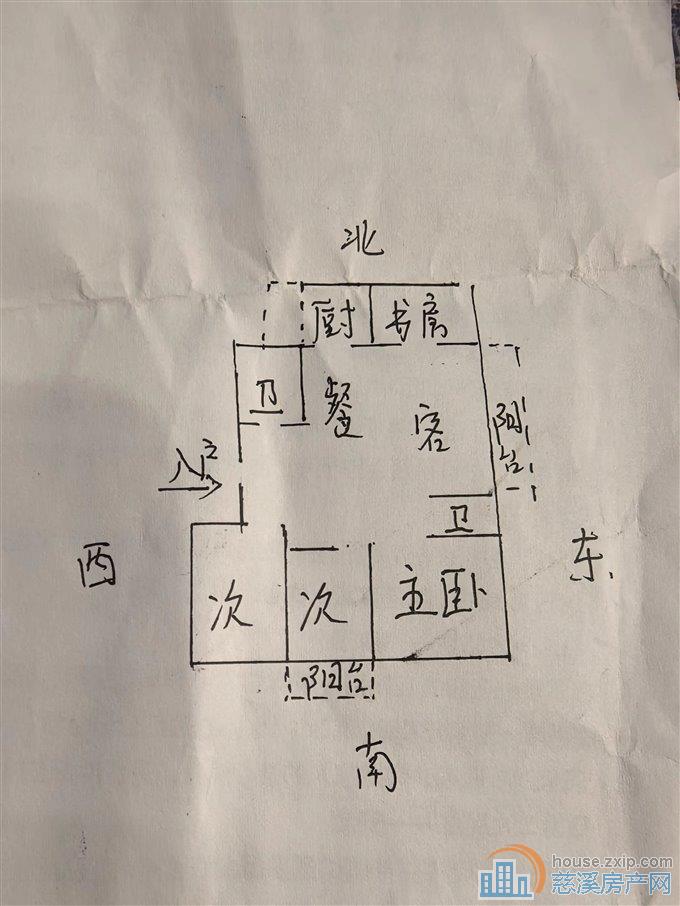 北
厨 书房
卫 餐 客 阳台
入户
卫
西 东
次 次 主卧
阳台
南
house.zxip.com
慈溪房产网